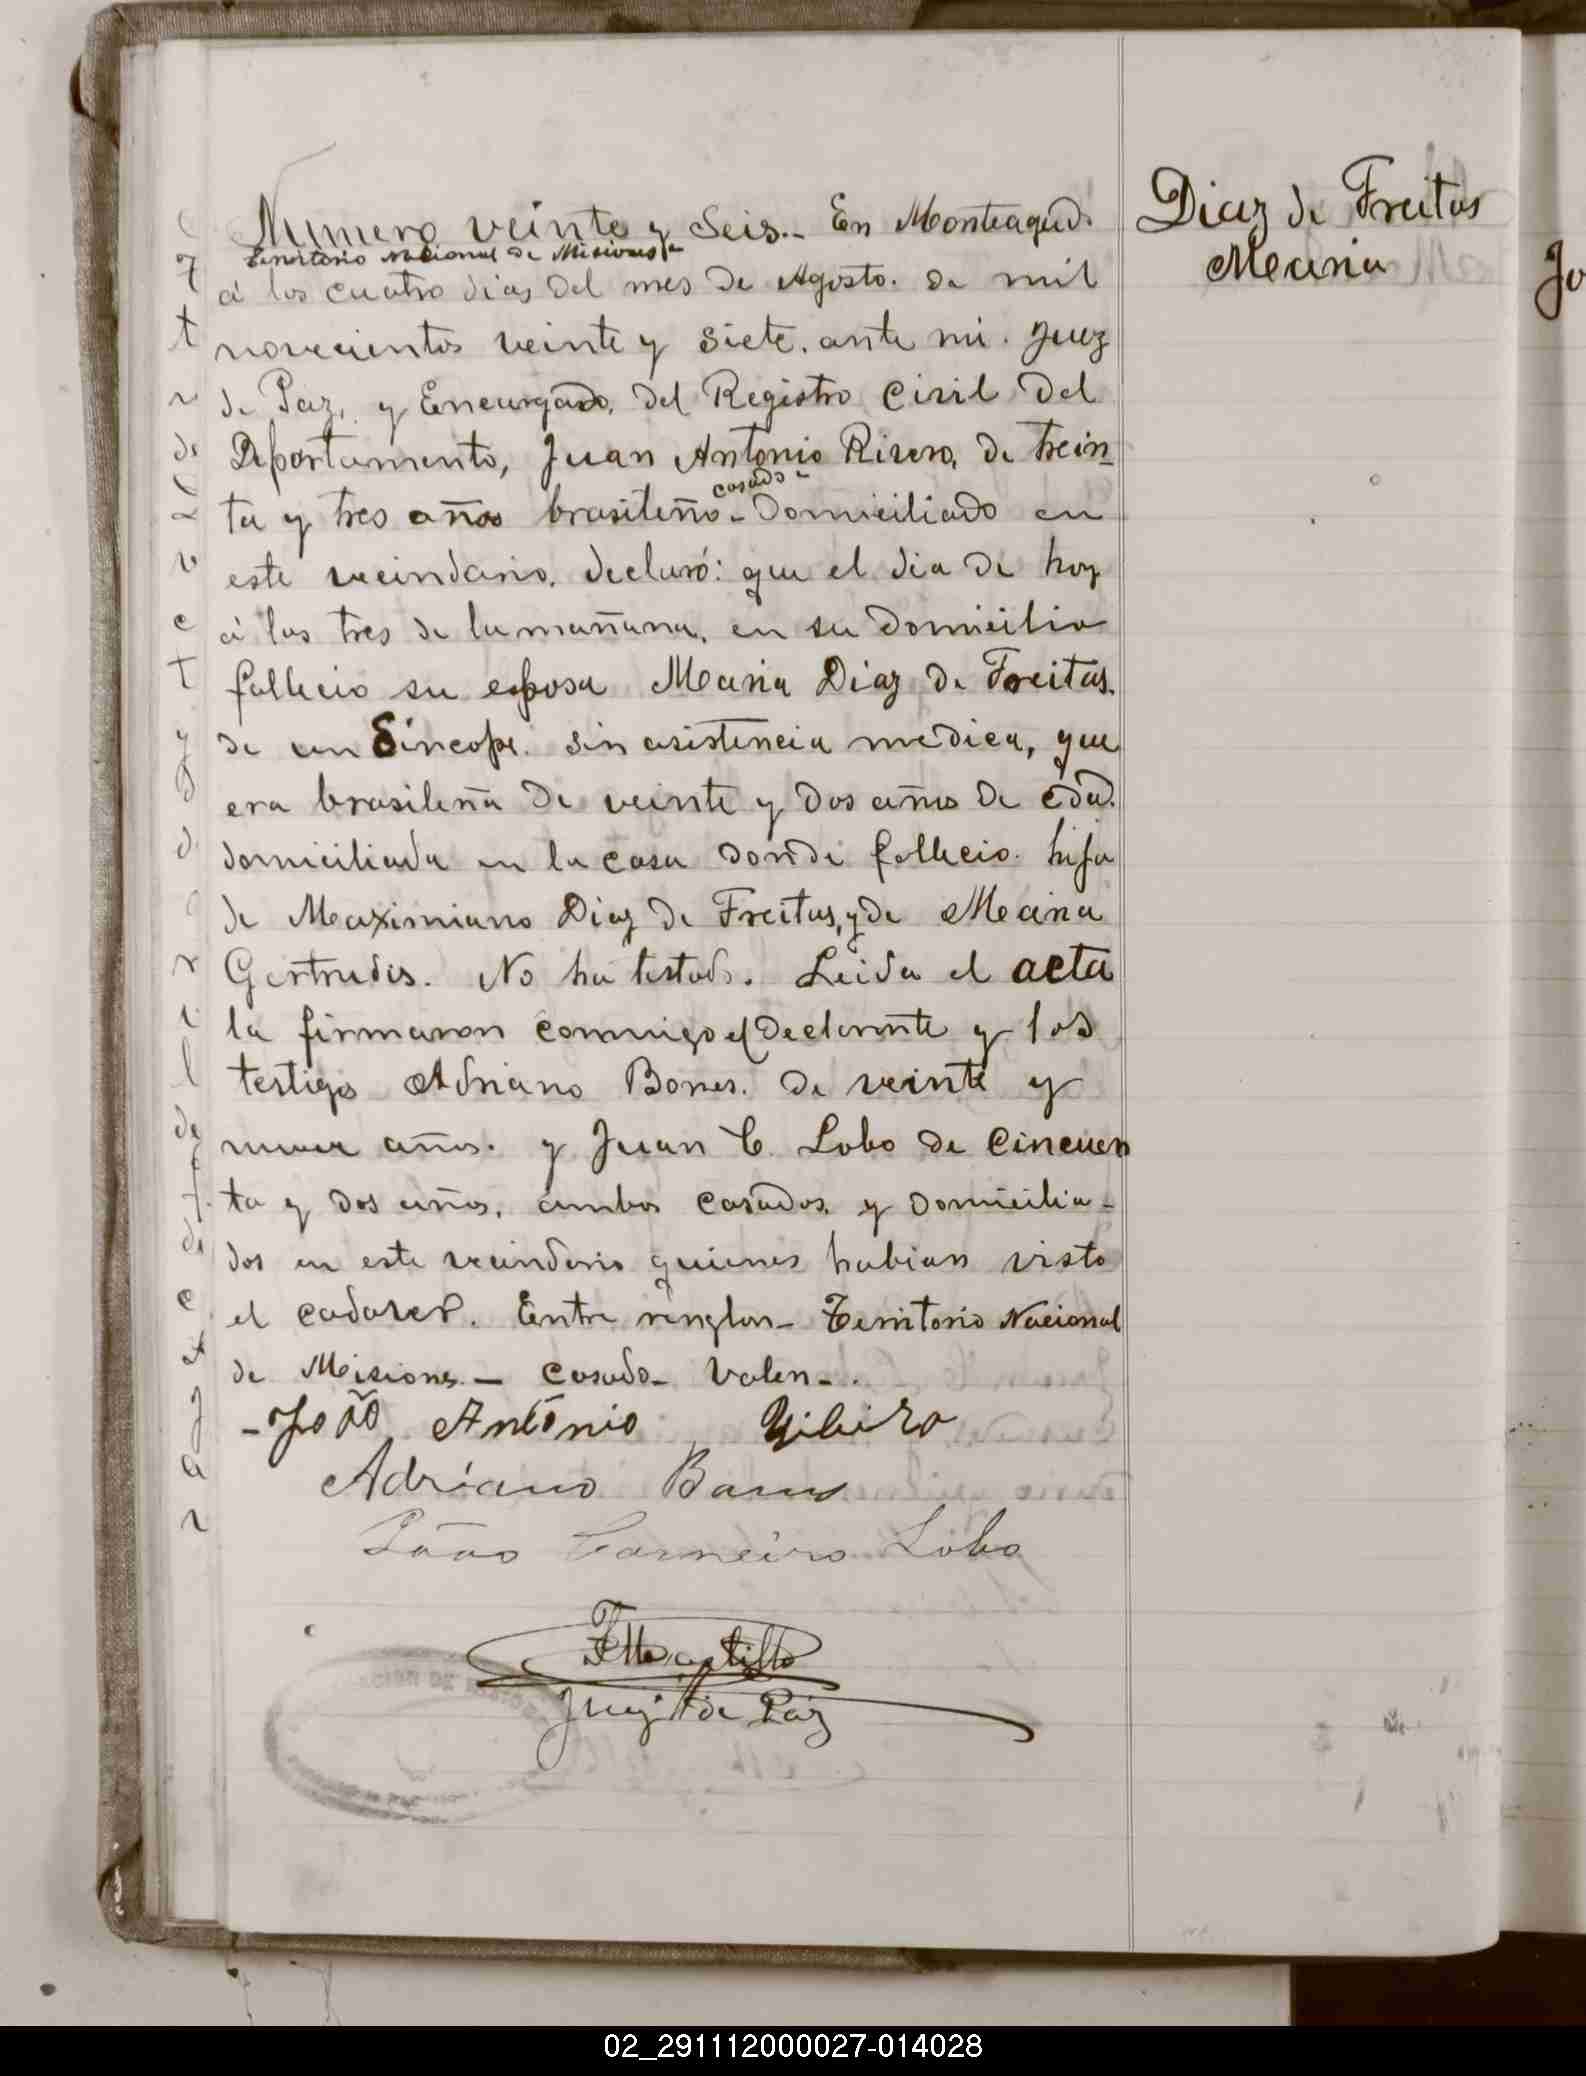 Diaz de Freitas
Maria
Numero veinte y Seis.- En Monteagudo
Territorio Nacional de Misiones-
á los cuatro dias del mes de Agosto. de mil
novecientos veinte y siete. ante mi. Juez
de Paz, y Encargado, del Registro Civil del
Departamento, Juan Antonio Rivero, de trein_
casado-
ta y tres años brasileño - domiciliado en
este vecindario. declaró: que el dia de hoy
á las tres de la mañana, en su domicilio
fallecio su esposa Maria Diaz de Freitas.
de un Sincope. sin asistencia medica, que
era brasileña de veinte y dos años de edad.
domiciliada en la casa donde fallecio. hija
de Maximiano Diaz de Freitas, y de Maria
Gertrudis. No ha testado. Leida el acta
la firmaron conmigo el declarante y los
testigos Adriano Bones. de veinte y
nueve años. y Juan C. Lobo de cincuen
ta y dos años, ambos casados, y domicilia-
dos en este vecindario quienes habian visto
el cadaver. Entre renglon- Territorio Nacional
de Misiones - casado- Valen-.
- João António Ribiro
Adriano
João Carneiro Lobo
Juez de Paz
Jo
02_291112000027-014028